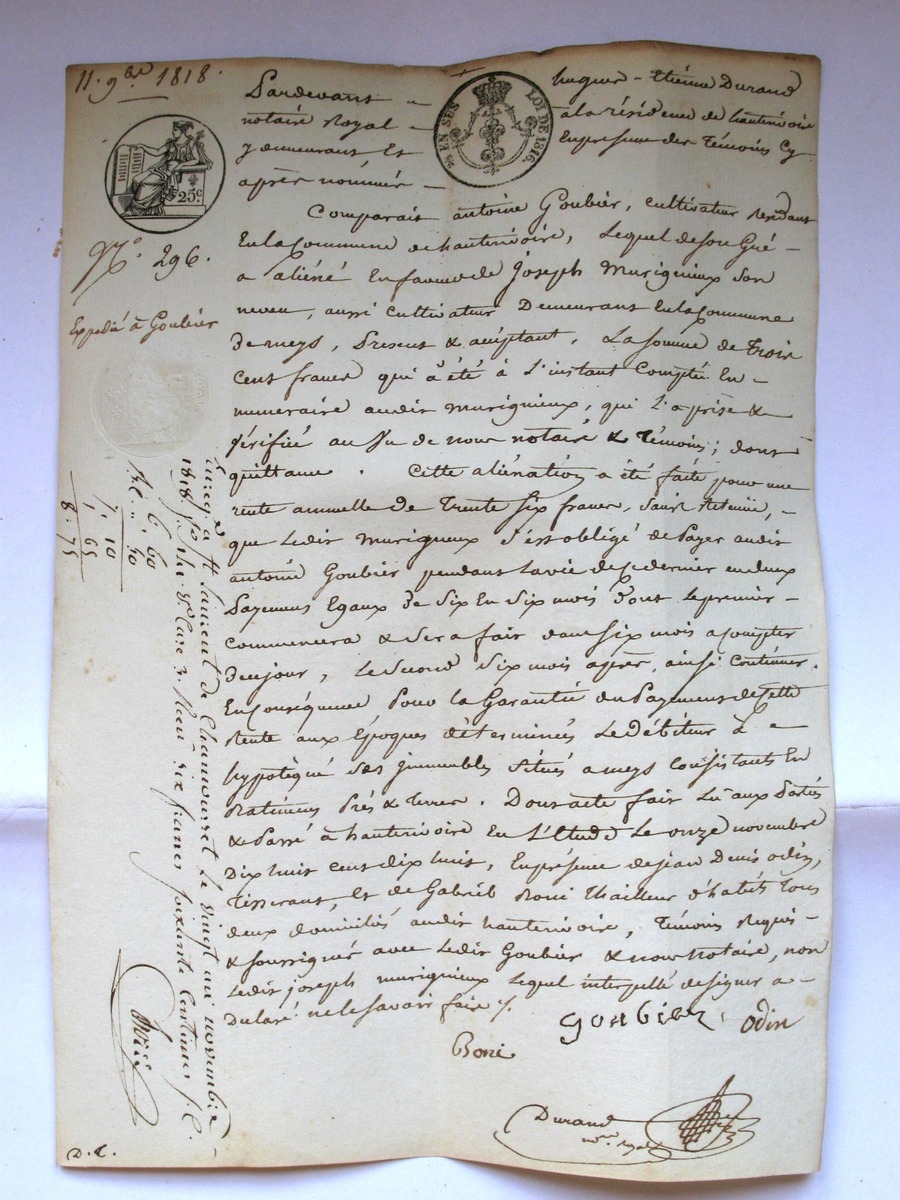 11. 9bre 1818.
Pardevant hugues-Etiéne Durand
notaire Royal à la résidence de hauterivoire
y demeurant Et En presence des Témoins Cy
après nommés
EN SUS LOI DE 1816
25c
No. 296.
Expedié à Goubier
Comparait antoine Goubier, cultivateur residant
En la Commune de hauterivoire, Lequel de son Gré
a aliéné En faveur de Joseph Murigneux son
neveu, aussi cultivateur Demeurant En la Commune
De meys, Present & acceptant, La somme de Trois
cent francs qui a été à L'instant Comptée En
numeraire audit murigneux, qui L'a prise &
Vérifiée au Vu de nous notaire & Témoins; dont
quittance. Cette aliénation a été faite pour une
rente annuelle de Trente Six francs, Sans Retenue,
que Ledit Murigneux S'est obligé de Payer audit
antoine Goubier pendant La vie de ce dernier en deux
Payemens Egaux De Six En Six mois Dont Le premier
commencera & Sera fait dans Six mois a compter
De ce jour, Le Second Six mois après, ainsi Continuer.
En Conséquence Pour La Garantie du Payement de cette
Rente aux Epoques déterminées Le débiteur a
hypotéqué Ses immeubles Situés a meys Consistants En
Batimens Prés & Terres. Dont acte fait Lu aux Parties
& Passé à hauterivoire En L'Etude Le onze novembre
Dix huit cent dix huit, En présence de jean Denis odin,
Tisserant, Et de Gabriel Boni Thailleur d'habits Tous
deux domiciliés audit hauterivoire, Témoins Requis
& soussignés avec Ledit Goubier & nous notaire, non
Ledit joseph murigneux Lequel interpellé de signer a
Declaré ne le savoir faire
goubier odin
Boni
Durand
nre royal
Enreg. à St Laurent de Chamousset Le vingt novembre
1818. fo Vo Case 3. Recu six francs soixante Centimes
6 60
50
7. 10
1 65
8. 75
D. C.